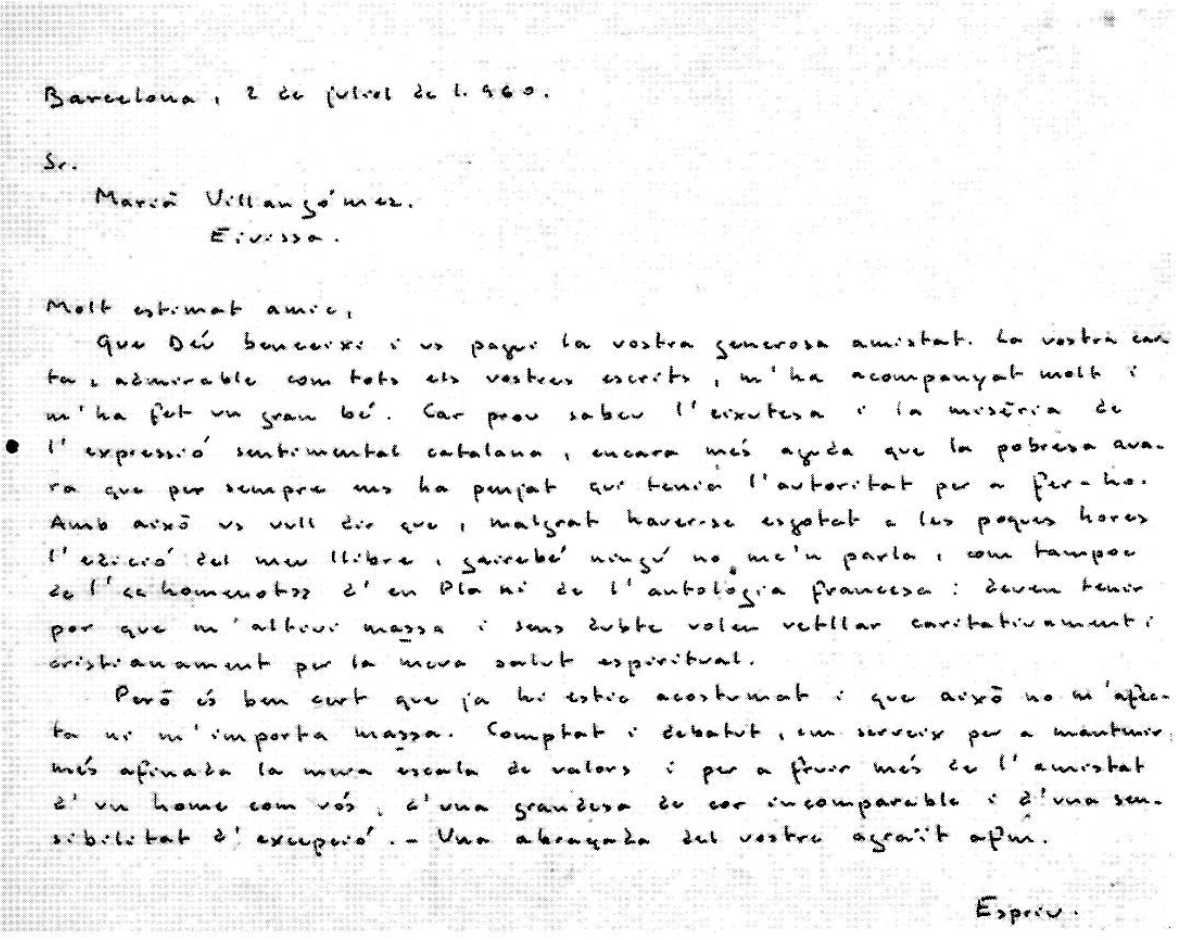 Barcelona, 2 de juliol de 1.960.
Sr.
Marià Villangómez.
Eivissa.
Molt estimat amic,
Que Déu beneeixi i us pagui la vostra generosa amistat. La vostra car
ta, admirable com tots els vostres escrits, m'ha acompanyat molt i
m'ha fet un gran bé. Car prou sabeu l'eixutesa i la misèria de
l'expressió sentimental catalana, encara més aguda que la pobresa ava-
ra que per sempre ens ha penjat qui tenia l'autoritat per a fer-ho.
Amb això us vull dir que, malgrat haver-se esgotat a les poques hores
l'edició del meu llibre, gairebé ningú no me'n parla, com tampoc
de l'«homenot» d'en Pla ni de l'antologia francesa: deuen tenir
por que m'altivi massa i sens dubte volen vetllar caritativament i
cristianament per la meva salut espiritual.
Però és ben cert que ja hi estic acostumat i que això no m'afec-
ta ni m'importa massa. Comptat i debatut, em serveix per a mantenir
més afinada la meva escala de valors i per a fruir més de l'amistat
d'un home com vós, d'una grandesa de cor incomparable i d'una sen-
sibilitat d'excepció. - Una abraçada del vostre agraït afm.
Espriu.